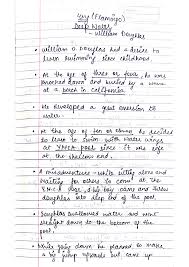 (Flamingo)
Deep Water
- William Douglas
• William O Douglas had a desire to
learn swimming since childhood.
• At the age of three or four, he was
knocked down and buried by a wave
at a beach in California.
• He developed a great aversion to
water.
• At the age of ten or eleven he decided
to learn to swim with water wings
at YMCA pool since it was safe
at the shallow end.
• A misadventure :- while sitting alone and
waiting for others to come at the
YMCA pool, a big boy came and threw
Douglas into deep end of the pool.
• Douglas swallowed water and went
straight down to the bottom of the
pool.
• While going down he planned to make
a big jump upwards but came up